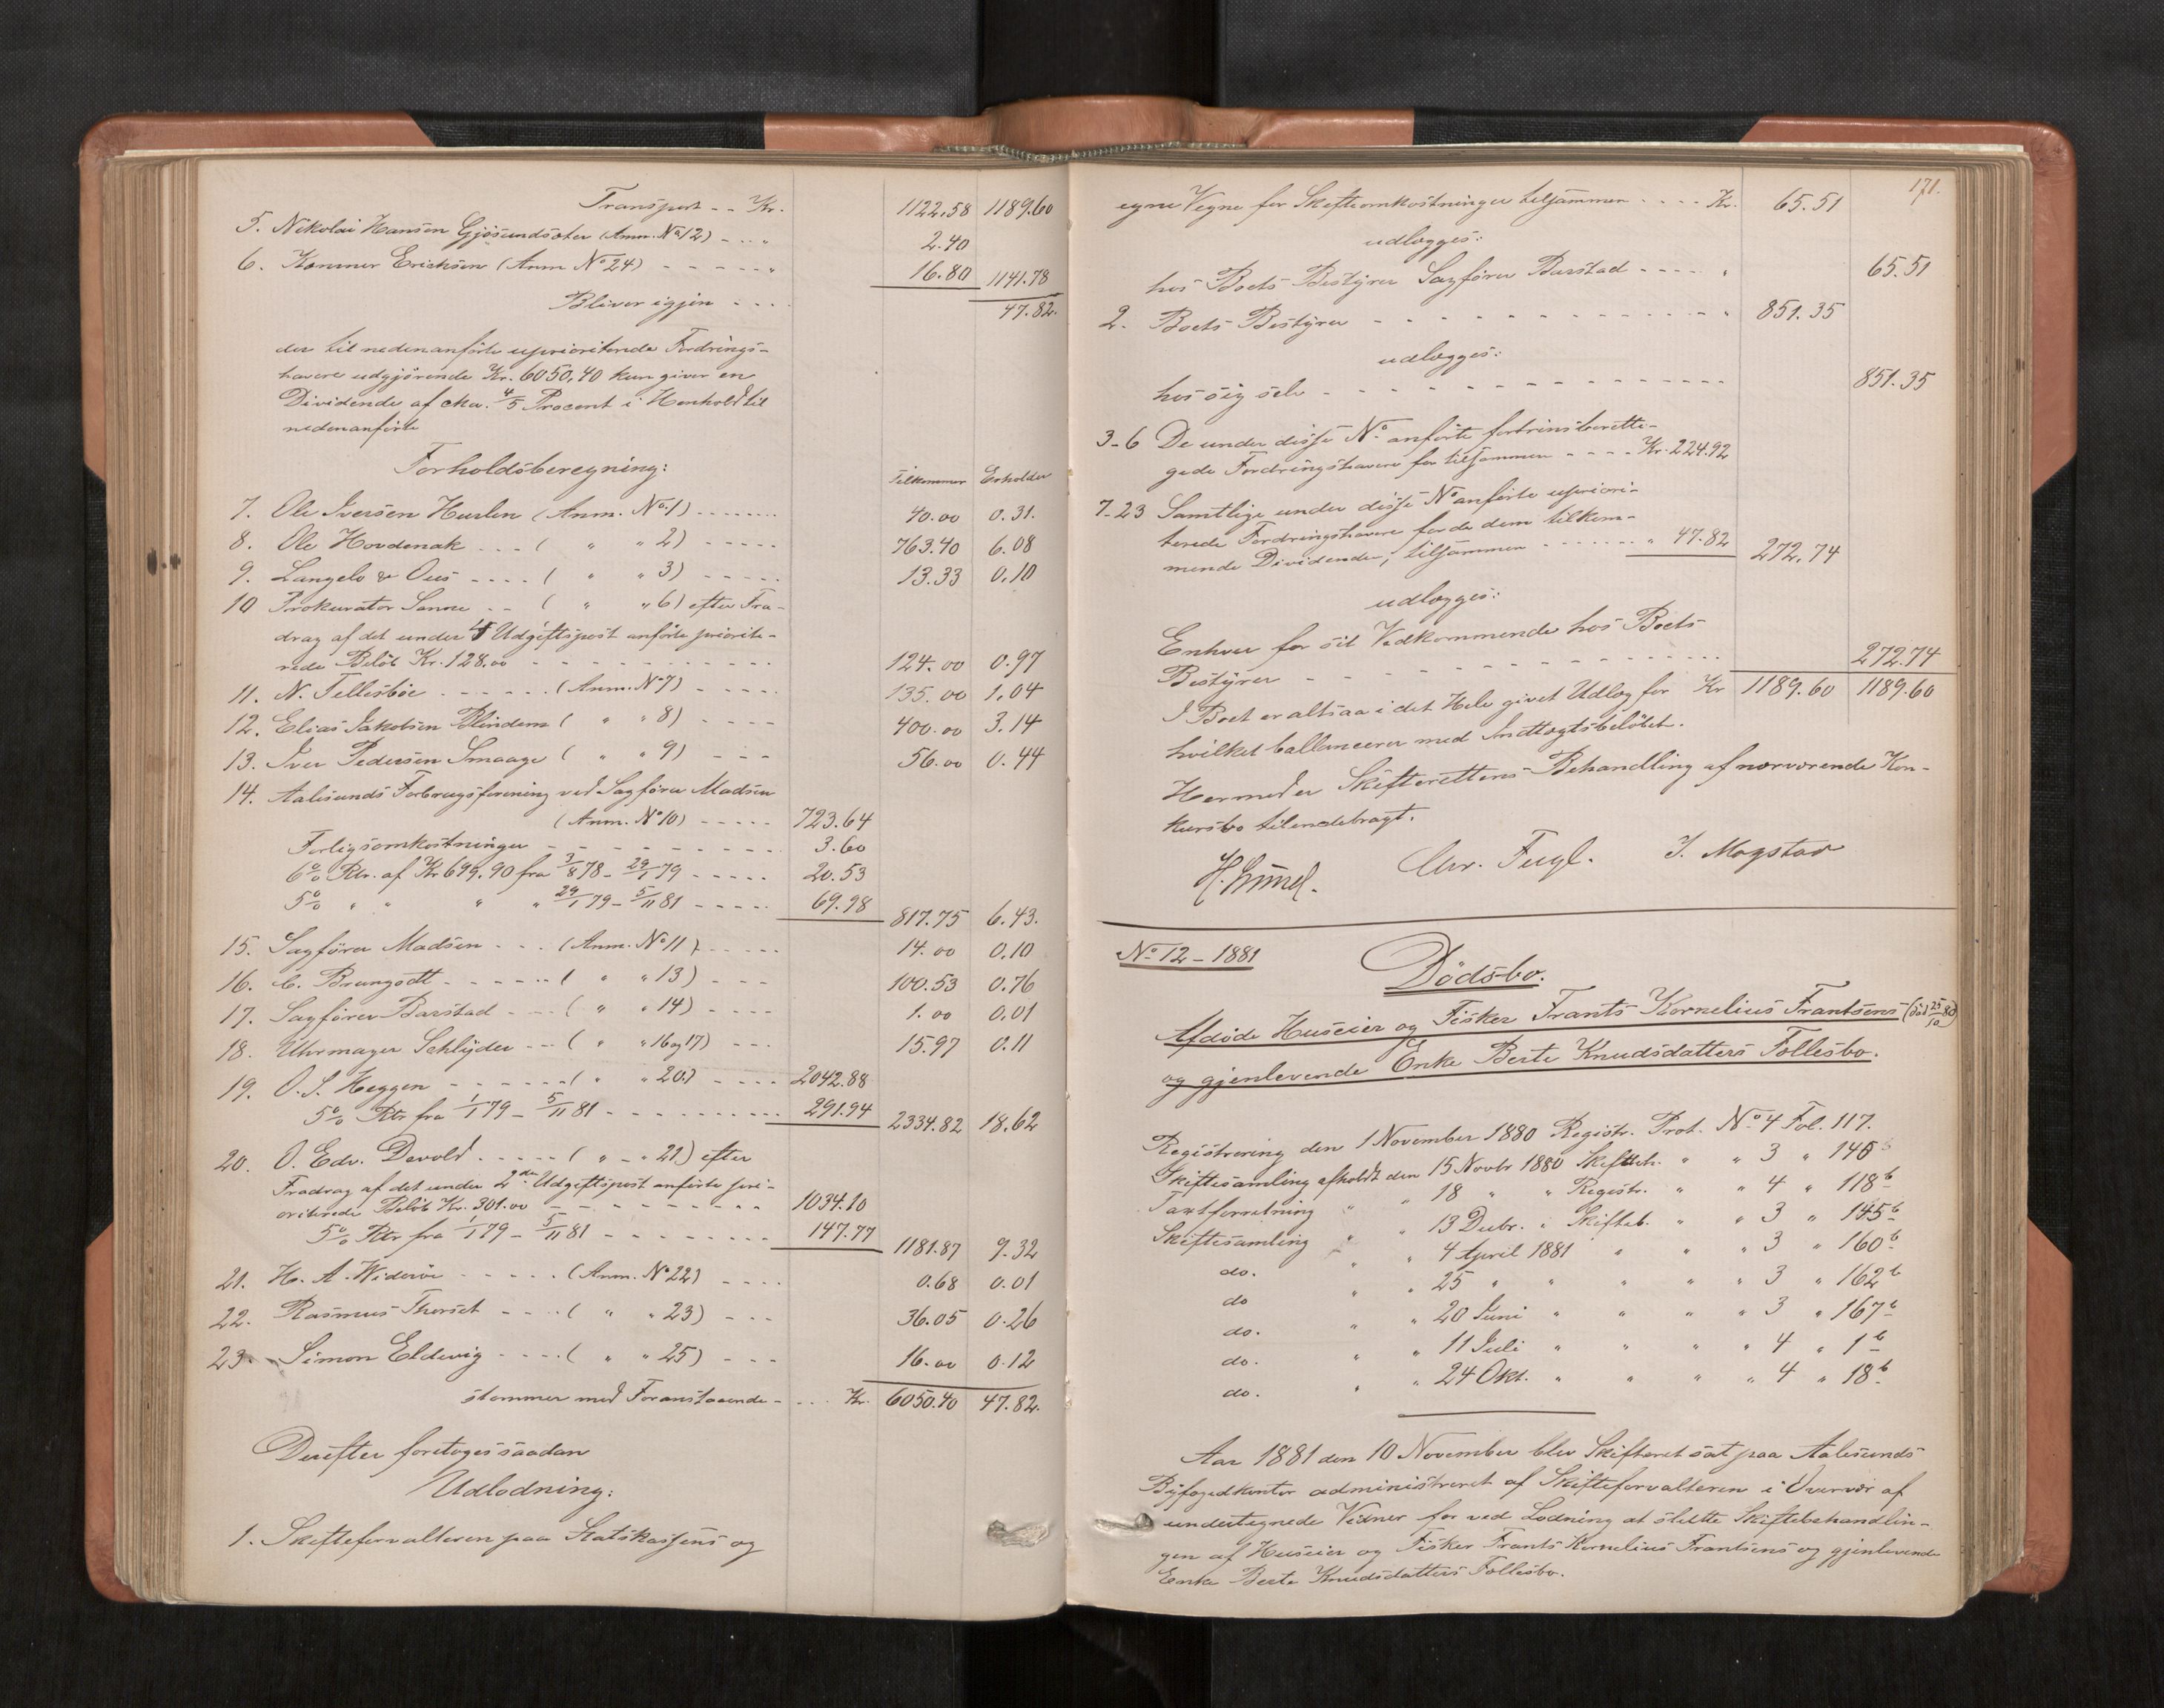 Transport - - Kr. 1122.58 1189.60
5. Nikolai Hansen Gjösundsæter (Anm. No 12) - - - " 2.40
6. Konnner Erichsen (Anm No 24) - - - - - " 16.80 1141.78
Bliver igjen - - - 47.82.
der til nedenanförte uprioriterede Fordrings-
havere udgjörende Kr. 6050,40 kun giver en
Dividende af cka. 4/5 Procent i Henhold til
nedenanförte
Forholdsberegning:
Tilkommer Erholder
7. Ole Iversen Huslen (Anm. No 1) - - - - - - 40.00 0.31.
8. Ole Hovdenak - - - ( " " 2) - - - - - 763.40 6.08
9. Langelo & Ous - - - - ( " " 3) - - - - - 13.33 0.10
10 Prokurator Sanne - - ( " " 6) efter Fra-
drag af det under 4 Udgiftspost anförte priorite-
rede Belöb Kr. 128.00 - - - - - - - - - 124.00 0.97
11. N. Tellesböe - - - - - - (Anm. No 7) - - - - 135.00 1.04
12. Elias Jakobsen Blindem ( " " 8) - - - - 400.00 3.14
13. Iver Pedersen Smaage ( " " 9) - - - 56.00 0.44
14. Aalesunds Forbrugsforening ved Sagförer Madsen
(Anm. No 10) - - - - - 723.64
Forligsomkostninger - - - - - - - - - 3.60
6% Rtr. af Kr 699.90 fra 3/8 78 - 29/1 79 - - - - - 20.53
5% " " " " 29/1 79 - 5/11 81 - - - - 69.98 817.75 6.43.
15. Sagförer Madsen - - - (Anm. No 11) - - - - - 14.00 0.10
16. C. Brungodt - - - - - - ( " " 13) - - - 100.53 0.76
17. Sagförer Barstad - - - ( " " 14) - - - - 1.00 0.01
18. Uhrmager Schlyder - - - ( " " 16 og 17) - - - 15.97 0.11
19. O. S. Heggen - - - - - - ( " " 20.) - - - - 2042.88
5% Rtr fra 1/1 79 - 5/11 81 - - - - - - - - - - 291.94 2334.82 18.62
20. O. Edv. Devold - - - - - ( " - " 21) efter
Fradrag af det under 2den Udgiftspost anförte pri-
oriterede Belöb Kr. 301.00 - - - - - - - - - 1034.10
5% Rtr fra 1/1 79 - 5/11 81 - - - - - - - - 147.77 1181.87 9.32
21. H. A. Wideröe - - - - - (Anm. No 22) - - - - 0.68 0.01
22. Rasmus Thorset - - - - ( " " 23) - - - 36.05 0.26
23. Simon Eldevig - - - - ( " " 25) - - - 16.00 0.12
stemmer med Foranstaaende - - - - Kr. 6050.40 47.82.
Derefter foretoges saadan
Udlodning:
1. Skifteforvalteren paa Statskassens og
171.
egne Vegne for Skifteomkostninger tilsammen - - - - Kr. 65.51
udlægges:
hos Boets Bestyrer Sagförer Barstad - - - - " 65.51
2. Boets Bestyrer - - - - - - - - - - - - - " 851.35
udlægges:
hos sig selv - - - - - - - - - - - - - - - 851.35
3-6 De under disse No anförte fortrinsberetti-
gede Fordringshavere for tilsammen - - - - Kr. 224.92
7-23 Samtlige under disse No anförte upriori-
terede Fordringshavere for de dem tilkom-
mende Dividender, tilsammen - - - - - - " 47.82 272.74
udlægges:
Enhver for sit Vedkommende hos Boets
Bestyrer - - - - - - - - - - - - - - - 272.74
I Boet er altsaa i det Hele givet Udlæg for Kr 1189.60 1189.60
hvilket ballancerer med Indtægtsbelöbet.
Hermed er Skifterettens Behandling af nærværende Kon-
kursbo tilendebragt.
Chr. Fugl. J. Mogstad
No 12 - 1881
Dödsbo.
Afdöde Huseier og Fisker Frants Kornelius Frantsens (död 25/10 80)
og gjenlevende Enke Berte Knudsdatters Fællesbo.
Registrering den 1 November 1880 Registr. Prot. No 4 Fol. 117.
Skiftesamling afholdt den 15 Novbr 1880 Skifteb. " " 3 " 140
Taxtforretning " " 18 " " Registr. " " 4 " 118b
Skiftesamling " " 13 Decbr. " Skifteb. " " 3 " 145b
do. " " 4 April 1881 " " " 3 " 160b
do " " 25 " " " " " 3 " 162b
do. " " 20 Juni " " " " 3 " 167b
do. " " 11 Juli " " " " 4 " 1b
do. " " 24 Okt. " " " " 4 " 18b
Aar 1881 den 10 November blev Skifteret sat paa Aalesunds
Byfogedkontor administreret af Skifteforvalteren i Overvær af
undertegnede Vidner for ved Lodning at slutte Skiftebehandlin-
gen af Huseier og Fisker Frants Kornelius Frantsens og gjenlevende
Enke Berte Knudsdatters Fællesbo.